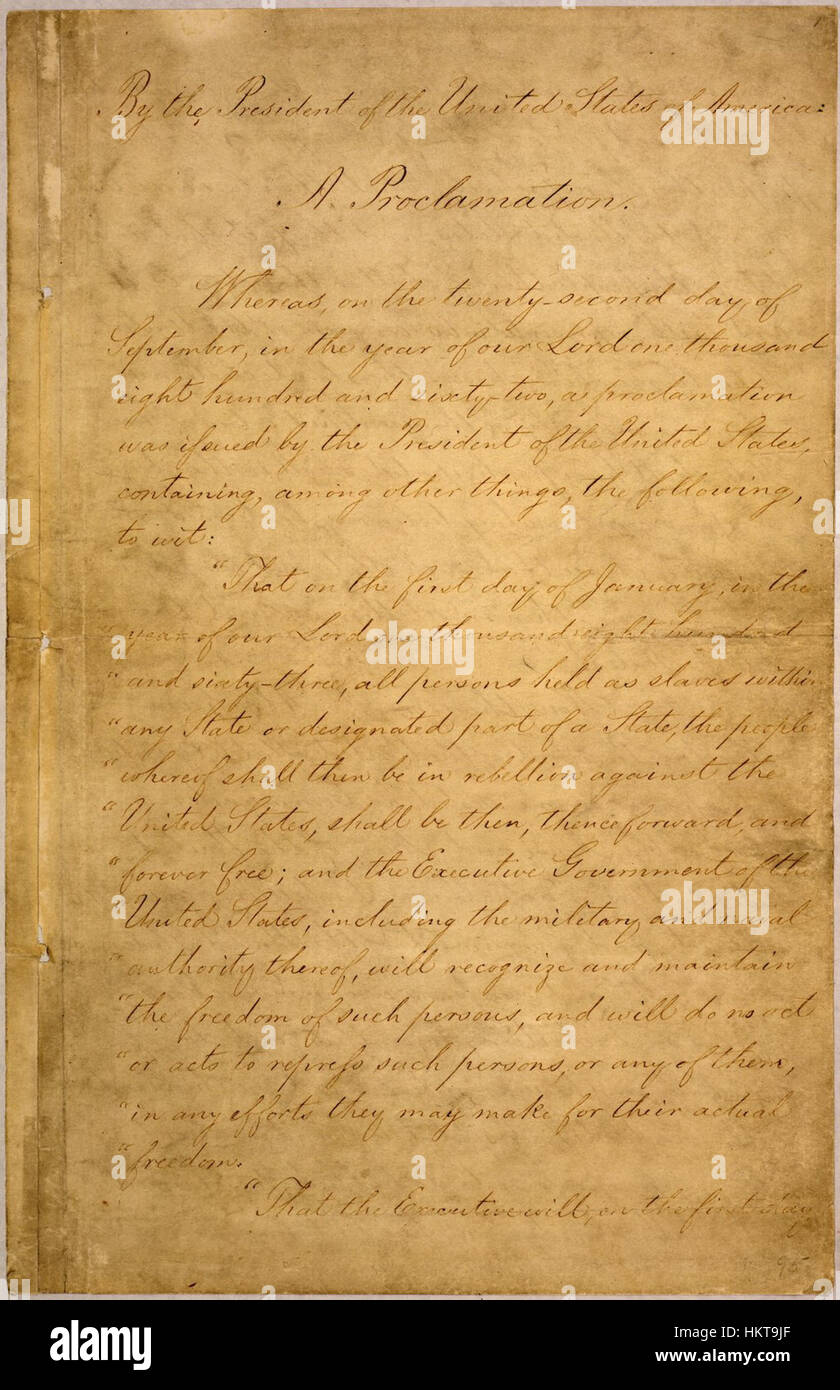 By the President of the United States of America:
A Proclamation.
Whereas, on the twenty-second day of
September, in the year of our Lord one thousand
eight hundred and sixty-two, a proclamation
was issued by the President of the United States,
containing, among other things, the following,
to wit:
"That on the first day of January, in the
"year of our Lord one thousand eight hundred
"and sixty-three, all persons held as slaves within
"any State or designated part of a State, the people
"whereof shall then be in rebellion against the
"United States, shall be then, thenceforward, and
"forever free; and the Executive Government of the
"United States, including the military and naval
"authority thereof, will recognize and maintain
"the freedom of such persons, and will do no act
"or acts to repress such persons, or any of them,
"in any efforts they may make for their actual
"freedom.
"That the Executive will, on the first day
95
alamy
alamy
Image ID: HKT9JF
www.alamy.com